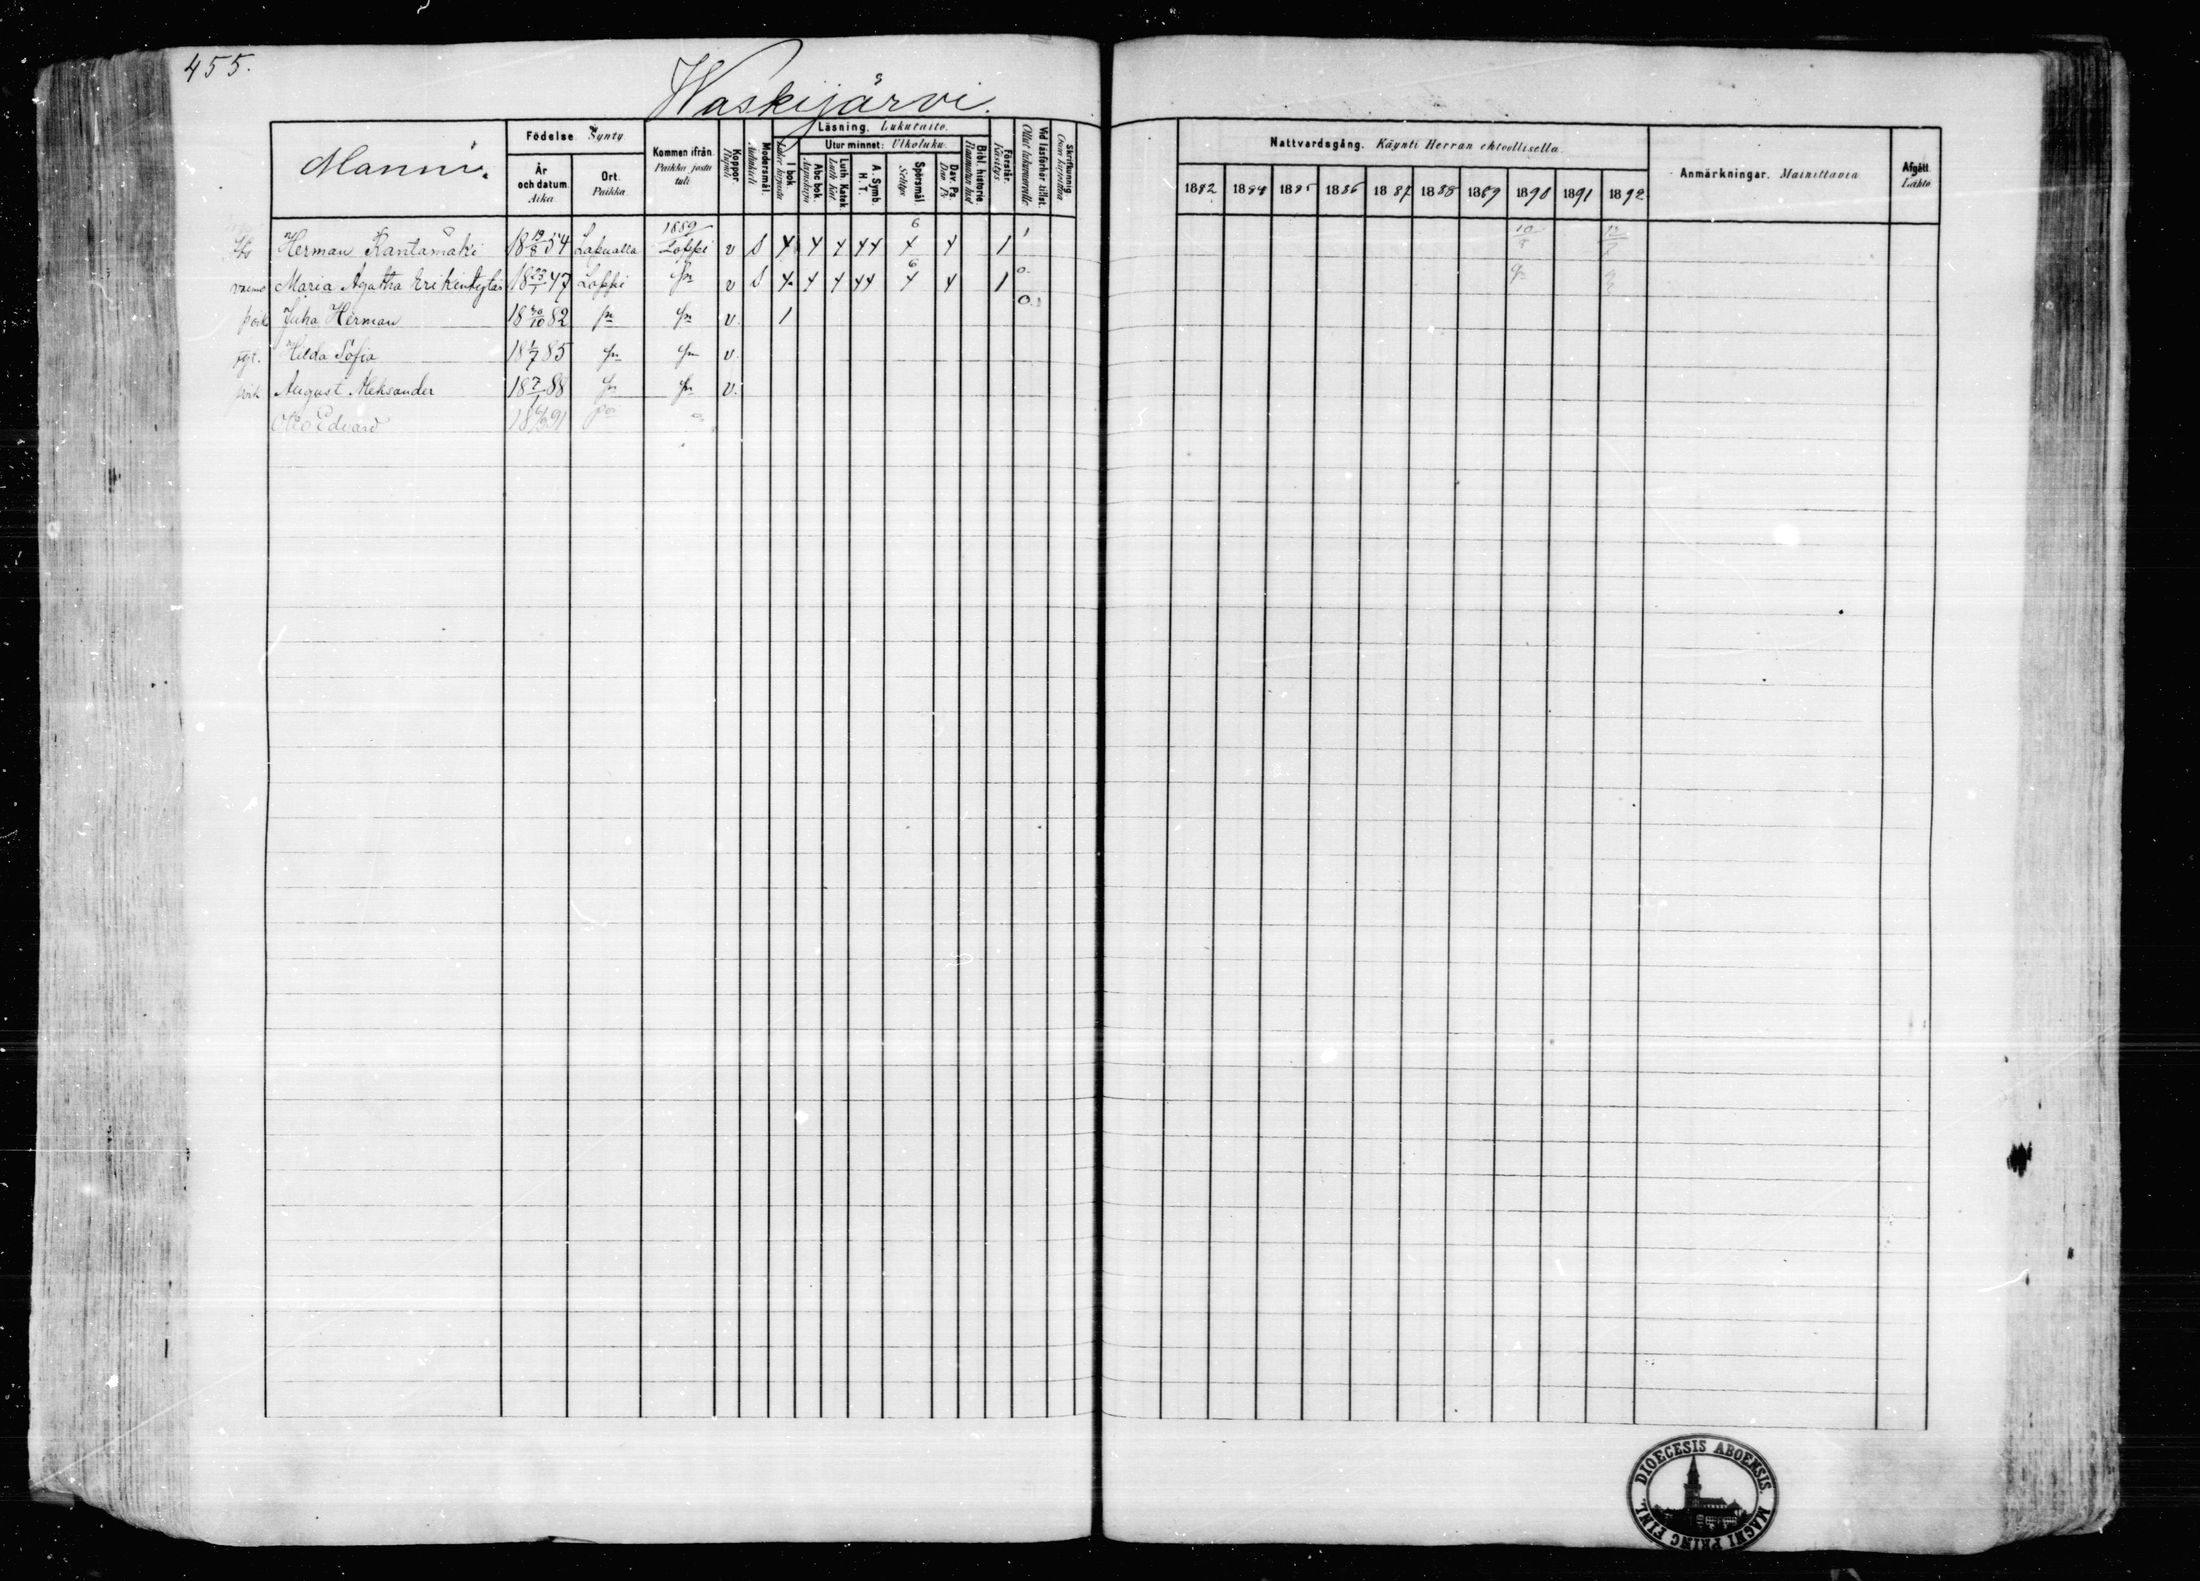 455.
Waskijärvi.
Manni.
Födelse Synty
Kommen ifrån Paikka josta tuli
Koppor. Rupuli
Modersmål. Äidinkieli
Läsning. Lukutaito.
Utur minnet: Ulkoluku.
I bok
Abc bok. Aapiskirja
Luth. Katek. Luth. Kat.
A. Symb. H. T.
Spörsmål. Selitys
Dav. Ps. Dav. Ps.
Bibl. historie.
Förstår. Käsitys
Vid läsförhör tillst. Ollut lukuvuorolla
Skriftkunnig. Osaa kirjoittaa
År och datum. Aika
Ort. Paikka.
Nattvardsgång. Käynti Herran ehtoollisella.
Anmärkningar. Mainittavia
Afgått. Lähtö
1882 1884 1885 1886 1887 1888 1889 1890 1891 1892
Herman Kantamäki 18 19/8 54 1889 Loppi v S 6 1 1 10/8
vaimo Maria Agatha Erikintytär 18 23/1 47 Loppi v S 6 1 0
poik Juha Herman 18 30/10 82 v. 1 0
tyt. Hilda Sofia 18 85 v.
poik August Aleksander 18 7/1 88 v.
Otto Edvard 18 91
DIOECESIS ABOENSIS. MAGNI PRINC FINL.